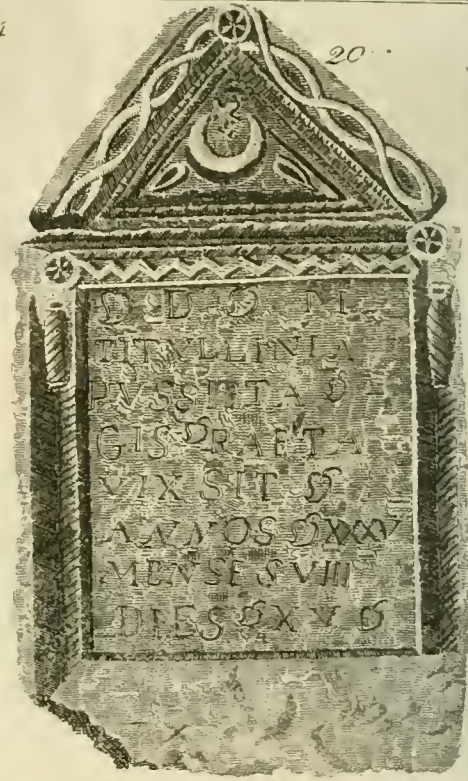 20
❦ D ❦ M
TITVLLINIA
PVSSITTA ❦
GIS ❦ RAETA
VIXSIT ❦
ANNOS ❦ XXXV
MENSES VIII
DIES ❦ XV ❦